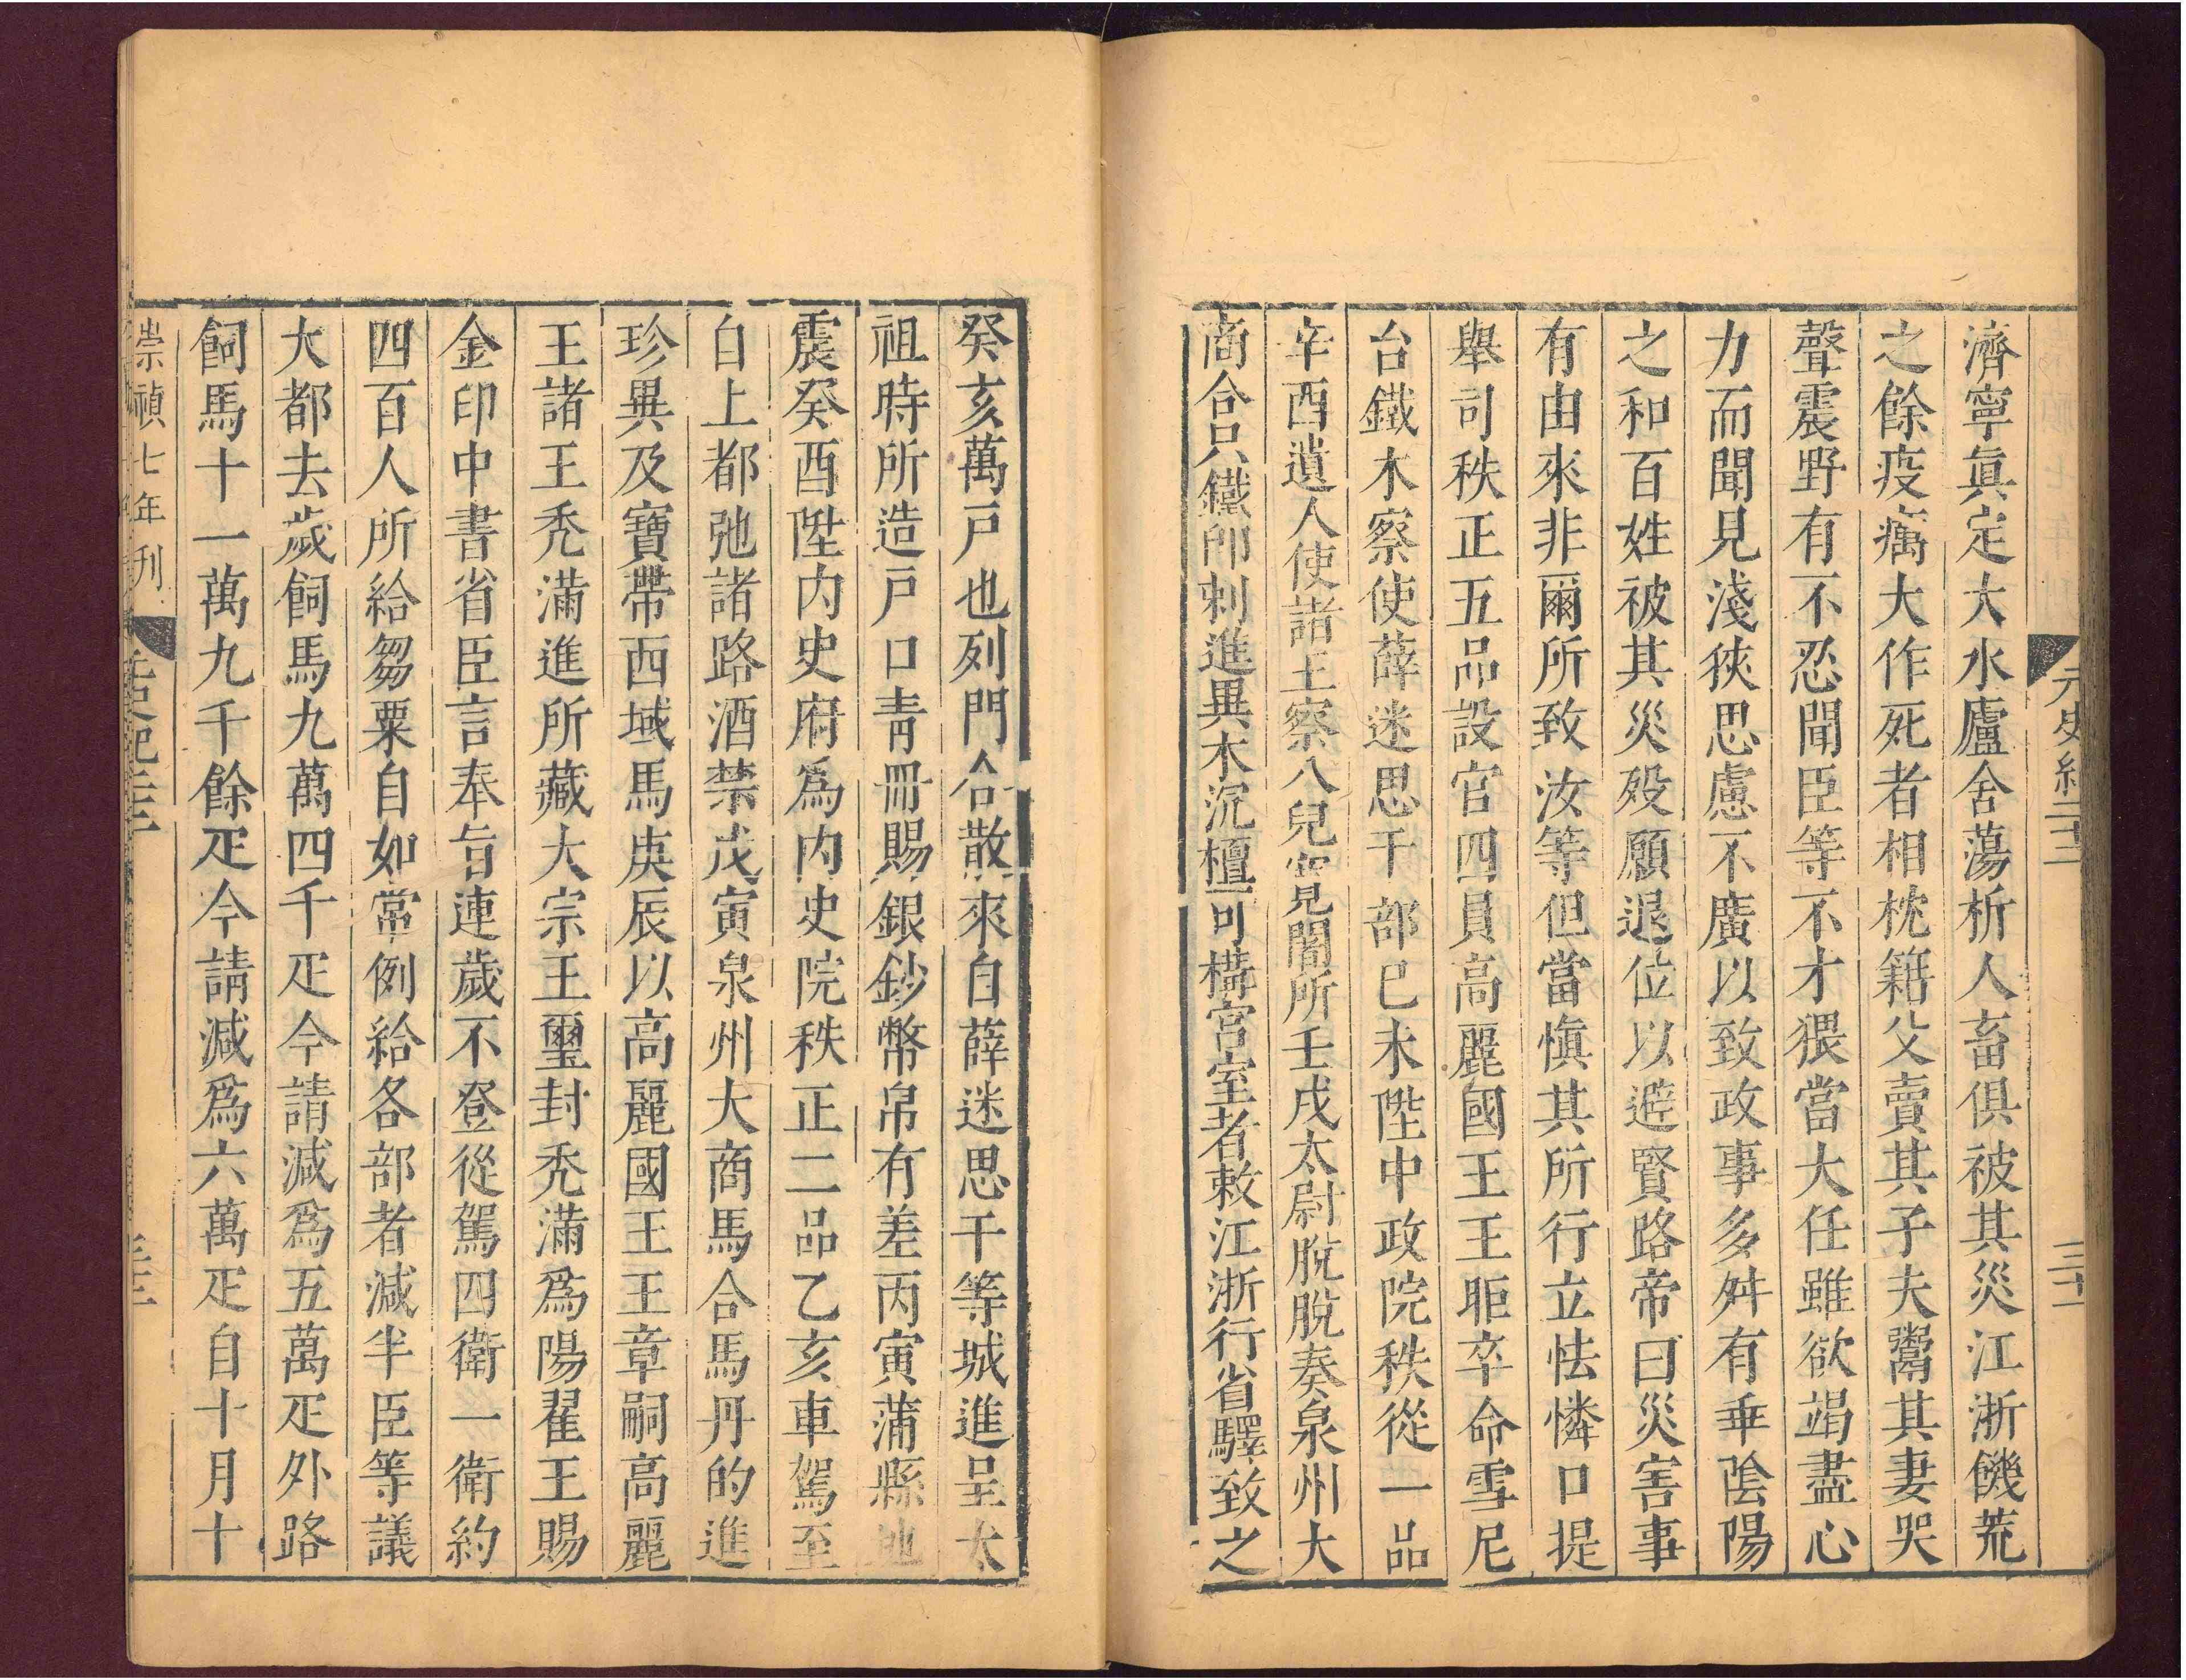 元史紀二十二
三十一
濟寧眞定大水廬舍蕩析人畜俱被其災江浙饑荒
之餘疫癘大作死者相枕籍父賣其子夫鬻其妻哭
聲震野有不忍聞臣等不才猥當大任雖欲竭盡心
力而聞見淺狹思慮不廣以致政事多舛有乖陰陽
之和百姓被其災殃願退位以避賢路帝曰災害事
有由來非爾所致汝等但當愼其所行立怯憐口提
舉司秩正五品設官四員高麗國王王昛卒命雪尼
台鐵木察使薛迷思干部己未陞中政院秩從一品
辛酉遣人使諸王察八兒寬闍所壬戌太尉脫脫奏泉州大
商合只鐵即剌進異木沉檀可構宮室者敕江浙行省驛致之
癸亥萬戶也列門合散來自薛迷思干等城進呈太
祖時所造戶口青冊賜銀鈔幣帛有差丙寅蒲縣地
震癸酉陞內史府爲內史院秩正二品乙亥車駕至
自上都弛諸路酒禁戊寅泉州大商馬合馬丹的進
珍異及寶帶西域馬庚辰以高麗國王王章嗣高麗
王諸王禿滿進所藏太宗王璽封禿滿爲陽翟王賜
金印中書省臣言奉旨連歲不登從駕四衛一衛約
四百人所給芻粟自如常例給各部者減半臣等議
大都去歲飼馬九萬四千疋今請減爲五萬疋外路
飼馬十一萬九千餘疋今請減爲六萬疋自十月十
崇禎七年刊